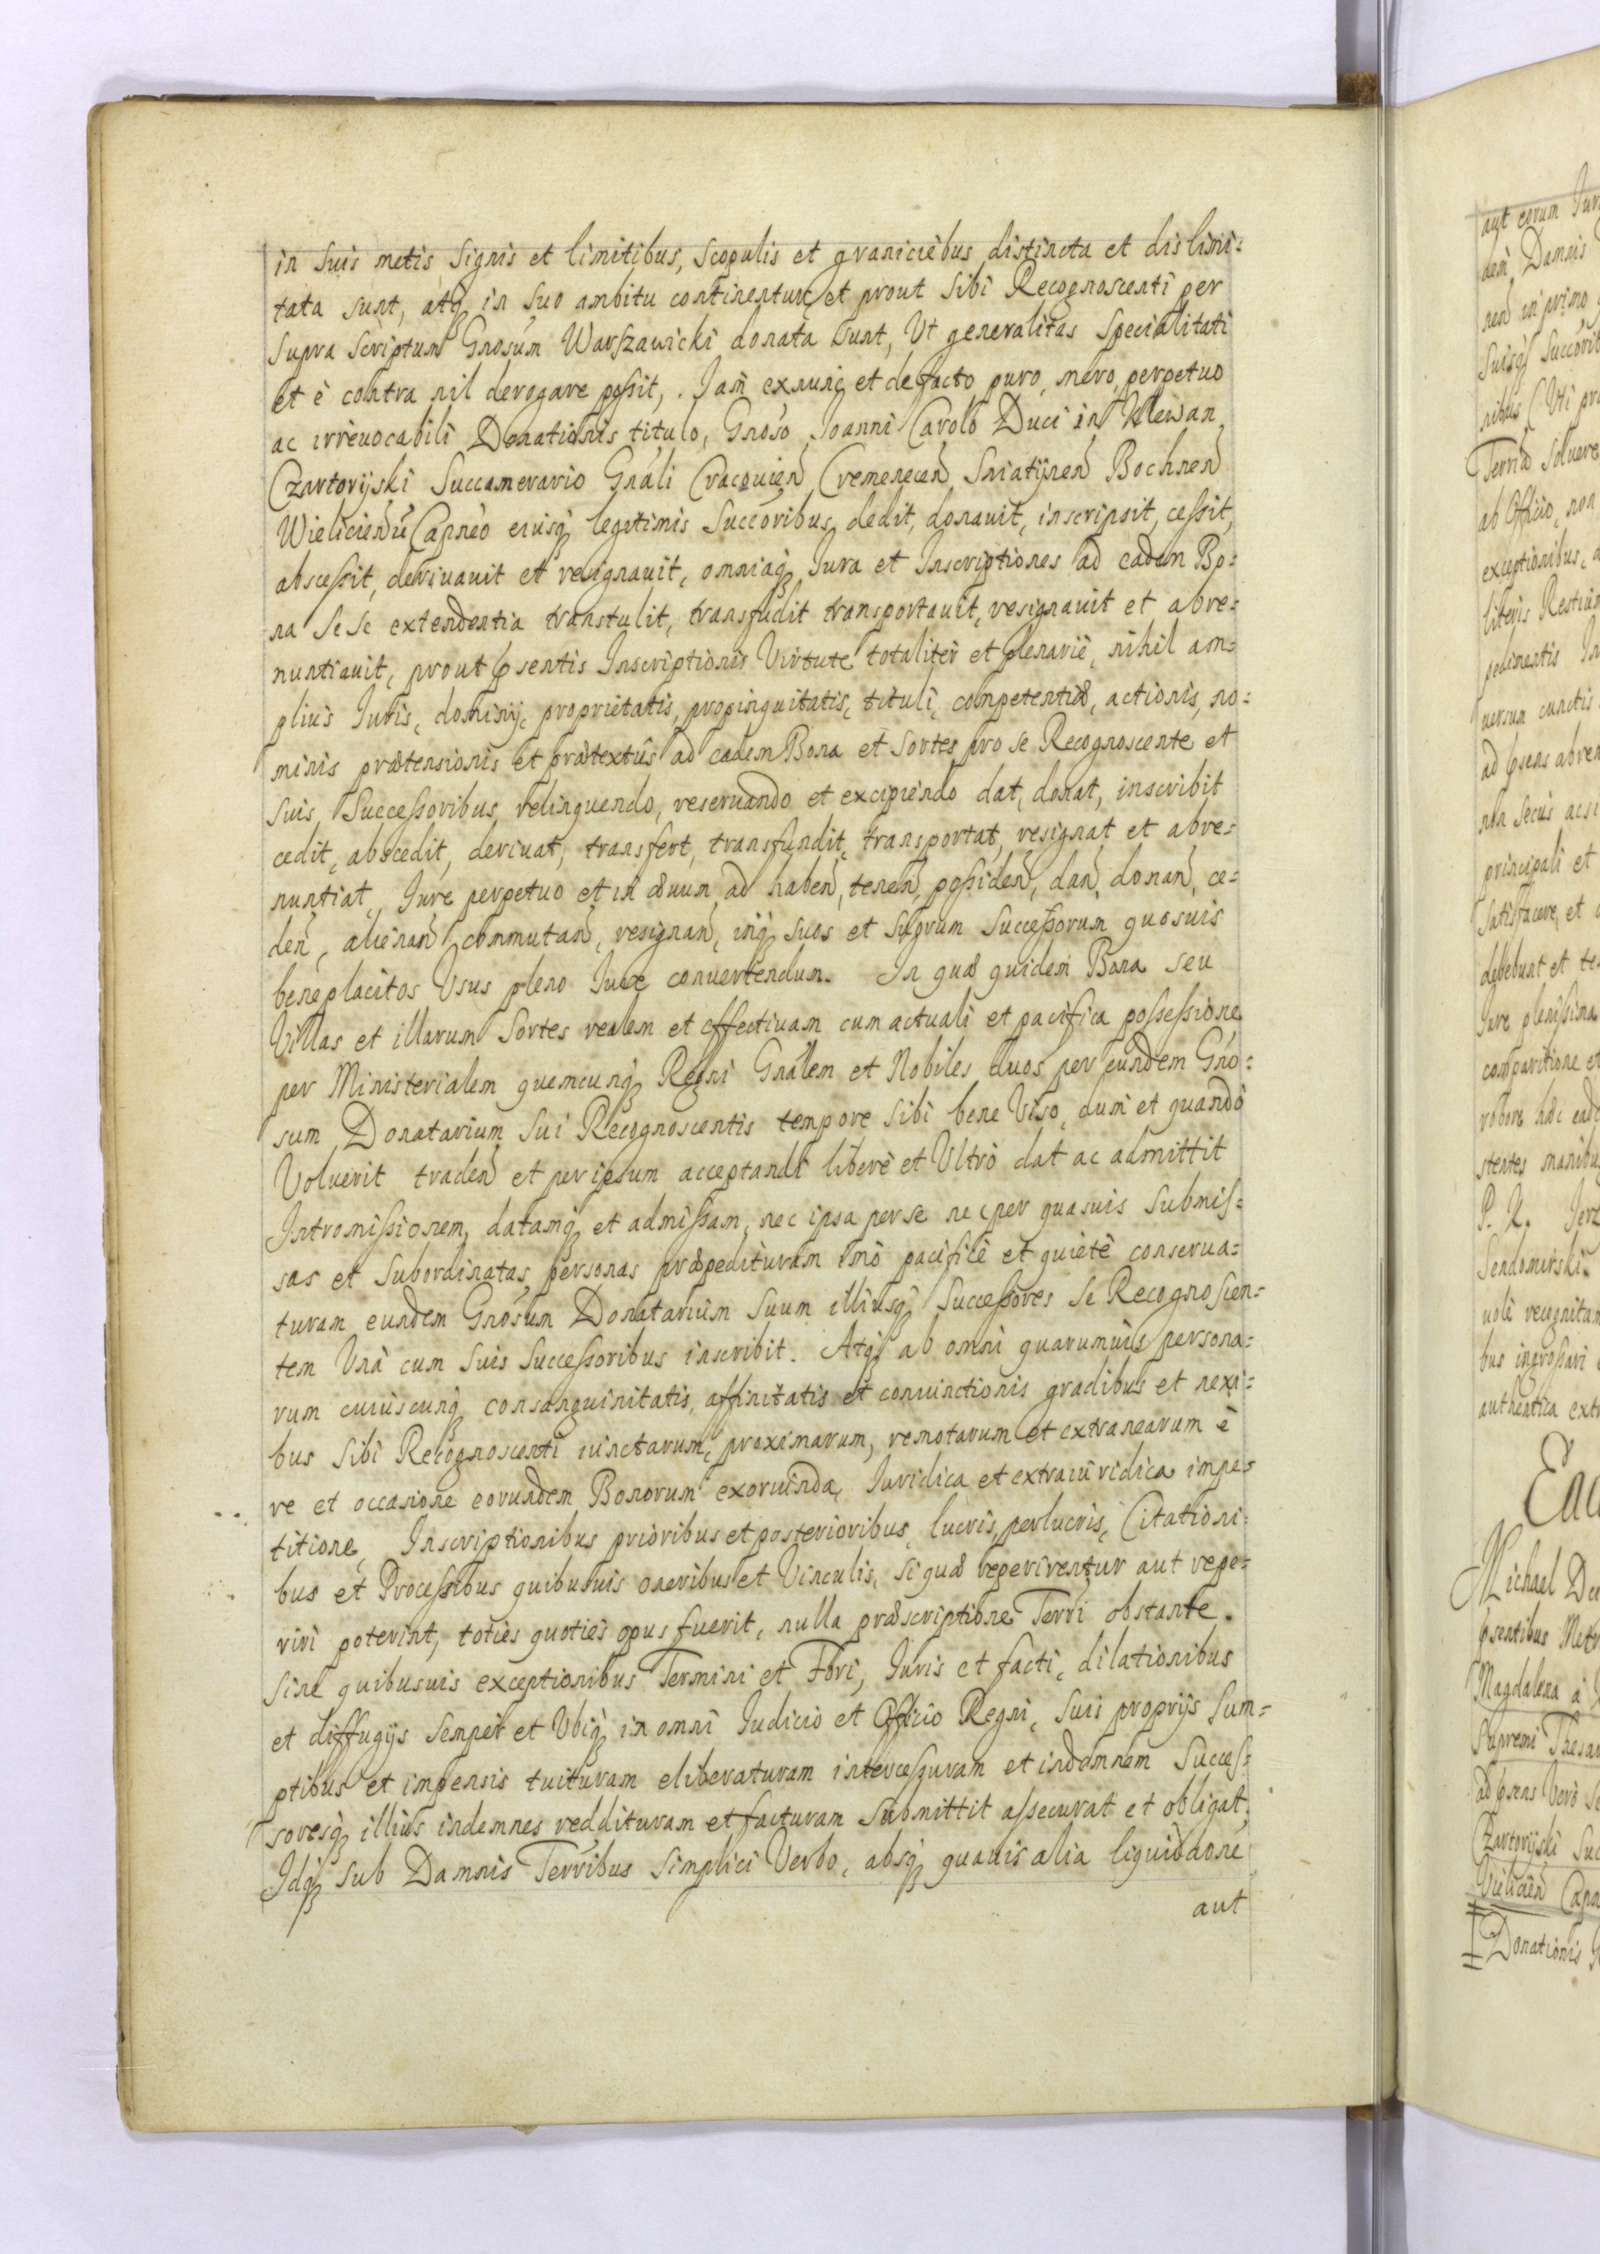 in suis metis signis et limitibus, scopulis et graniciebus distincta et dislimi=
tata sunt, atq, in suo ambitu continentur, et prout sibi Recognoscenti per
supra scriptum Gnosum Warszawicki donata sunt, Vt generalitas specialitati
et è contra nil derogare possit, . Jam exnunc et de facto puro, mero, perpetuo
ac irreuocabili Donationis titulo, Gnoso Joanni Carolo Duci in Klewan
Czartoryski Succamerario Gnali Cracouien Cremenecen Sniatynen Bochnen
Wielicien Capneo eiusq legitimis Succoribus dedit, donauit, inscripsit, cessit,
abscessit, deriuauit et resignauit, omniaq Jura et Inscriptiones ad eadem Bo=
na sese extendentia transtulit, transfudit transportauit, resignauit et abre=
nuntiauit, prout psentis Inscriptionis Virtute totaliter et plenariè, nihil am=
plius Juris, dominij, proprietatis, propinquitatis, tituli, competentiæ, actionis, no=
minis prætensionis et prætextûs ad eadem Bona et Sortes pro se Recognoscente et
suis Successoribus relinquendo, reseruando et excipiendo dat, donat, inscribit
cedit, abscedit, deriuat, transfert, transfundit, transportat, resignat et abre=
nuntiat, Jure perpetuo et in æuum ad haben, tenen, possiden, dan, donan, ce=
den, alienan commutan, resignan, inq suos et suorum Successorum quosuis
beneplacitos Vsus pleno Jure conuertendum. In quæ quidem Bona seu
Villas et illarum Sortes realem et effectiuam cum actuali et pacifica possessione
per Ministerialem quemcunq Regni Gnalem et Nobiles duos per eundem Gno=
sum Donatarium sui Recognoscentis tempore sibi bene Viso, dum et quando
Voluerit traden et per ipsum acceptandi liberè et Vltrò dat ac admittit
Intromissionem, datamq et admissam, nec ipsa per se nec per quasuis submis=
sas et subordinatas personas præpedituram imò pacificè et quietè conserua=
turam eundem Gnosum Donatarium suum illiusq Successores se Recognoscen=
tem Vnà cum suis Successoribus inscribit. Atq ab omni quarumuis persona=
rum cuiuscunq consanguinitatis, affinitatis et coniunctionis gradibus et nexi=
bus sibi Recognoscenti iunctarum, proximarum, remotarum et extranearum è
re et occasione eorundem Bonorum exoriunda, Juridica et extraiuridica impe=
titione, Inscriptionibus prioribus et posterioribus, lucris, perlucris, Citationi=
bus et Processibus quibusuis oneribus et Vinculis, si quæ reperirentur aut repe=
riri poterint, toties quoties opus fuerit, nulla præscriptione Terri obstante.
sine quibusuis exceptionibus Termini et Fori, Juris et facti, dilationibus
et diffugijs semper et Vbiq in omni Judicio et Officio Regni, suis proprijs sum=
ptibus et impensis tuituram eliberaturam intercessuram et indemnem Succes=
soresq illius indemnes reddituram et facturam submittit assecurat et obligat.
Idq sub Damnis Terribus simplici Verbo, absq quauis alia liquidaone
aut
aut eorum
Damnis
nen in primo
suisq
nibus
Terria soluere
ab Officio, non
exceptionibus,
literis
pedimentis
uersum cunctis
ad psens
non secus acsi
principali et
satisfacere, et
debebunt et
Jure plenissima
comparitione et
robore hoc
stentes manibus
Sendomirski.
uolè recognitam
bus ingrossari
authentica
Michael
psentibus
Magdalena à
Supremi
ad psens Verò
Czartoryski
Vielicien
Donationis